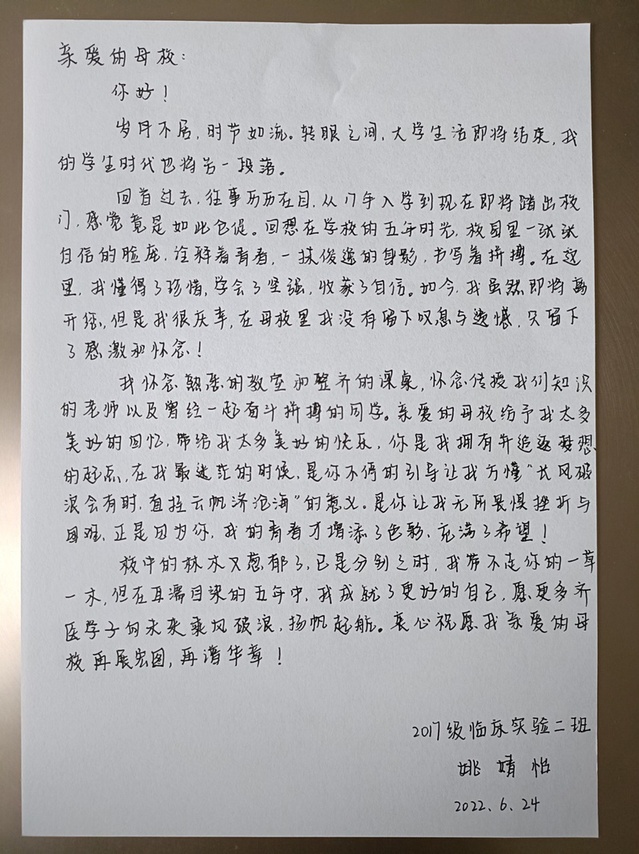 亲爱的母校：
你好！
岁月不居，时节如流。转眼之间，大学生活即将结束，我
的学生时代也将告一段落。
回首过去，往事历历在目，从门年入学到现在即将踏出校
门，感觉竟是如此仓促。回想在学校的五年时光，校园里一张张
自信的脸庞，诠释着青春，一抹俊逸的身影，书写着拼搏。在这
里，我懂得了珍惜，学会了坚强，收获了自信。如今，我虽然即将离
开您，但是我很庆幸，在母校里我没有留下叹息与遗憾，只留下
了感激和怀念！
我怀念熟悉的教室和整齐的课桌，怀念传授我们知识
的老师以及曾经一起奋斗拼搏的同学。亲爱的母校给予我太多
美好的回忆，带给我太多美好的快乐，你是我拥有并追逐梦想
的起点，在我最迷茫的时候，是你不停的引导让我方懂“长风破
浪会有时，直挂云帆济沧海”的意义。是你让我无所畏惧挫折与
困难，正是因为你，我的青春才增添了色彩，充满了希望！
校中的林木又葱郁了，已是分别之时，我带不走你的一草
一木，但在耳濡目染的五年中，我成就了更好的自己，愿更多齐
医学子向未来乘风破浪，扬帆起航。衷心祝愿我亲爱的母
校再展宏图，再谱华章！
2017级临床实验二班
姚婧怡
2022.6.24